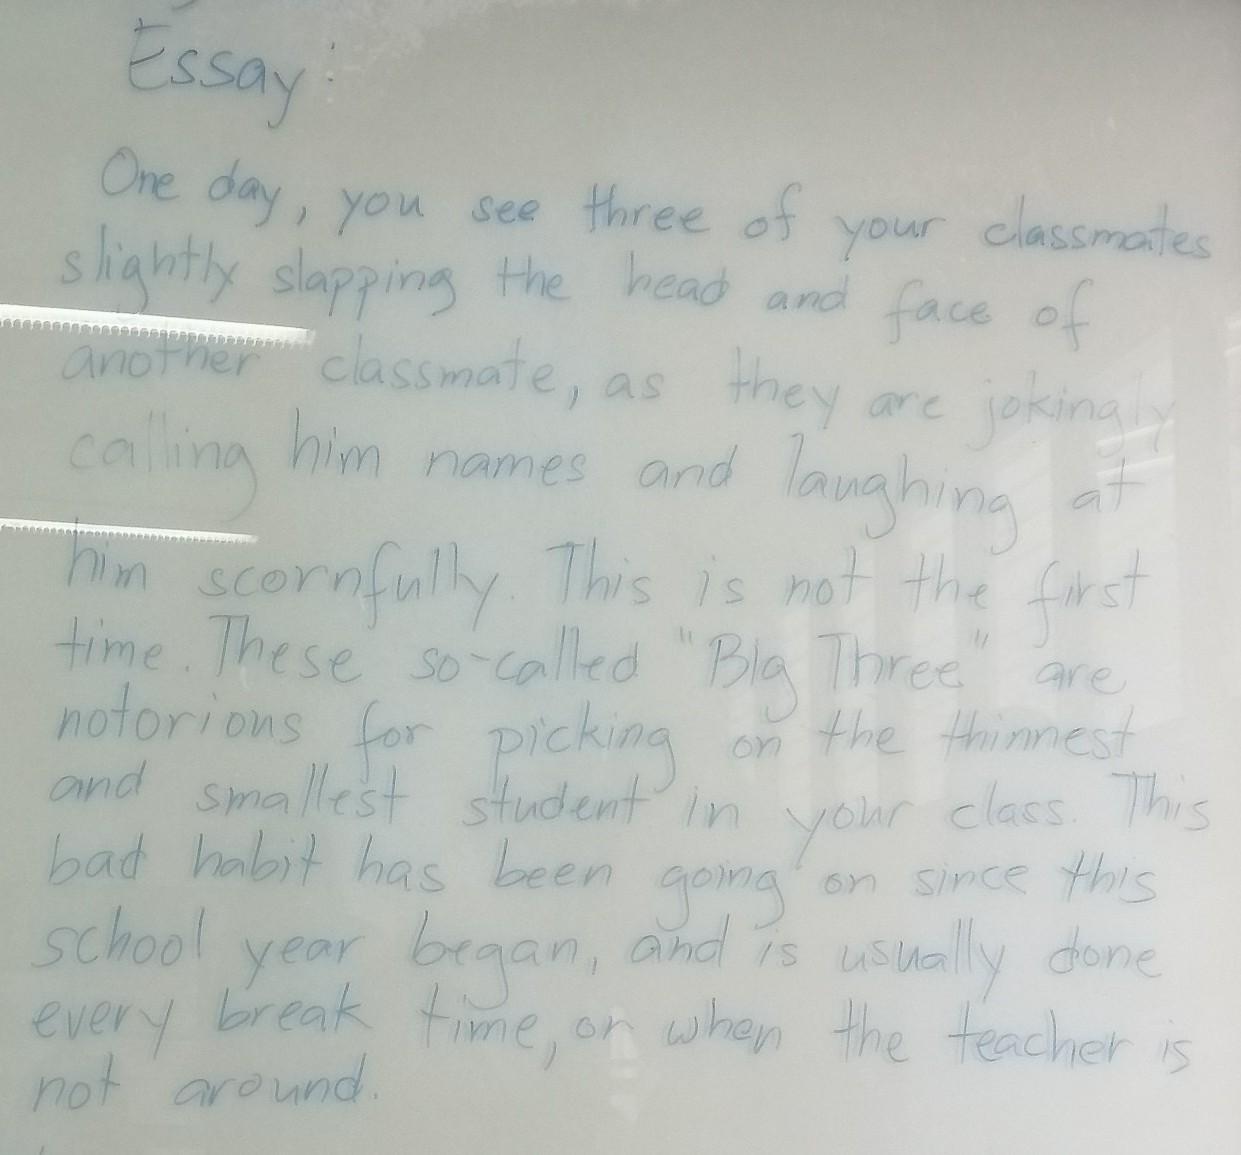 Essay:
One day, you see three of your classmates
slightly slapping the head and face of
another classmate, as they are jokingly
calling him names and laughing at
him scornfully. This is not the first
time. These so-called "Big Three" are
notorious for picking on the thinnest
and smallest student in your class. This
bad habit has been going on since this
school year began, and is usually done
every break time, or when the teacher is
not around.